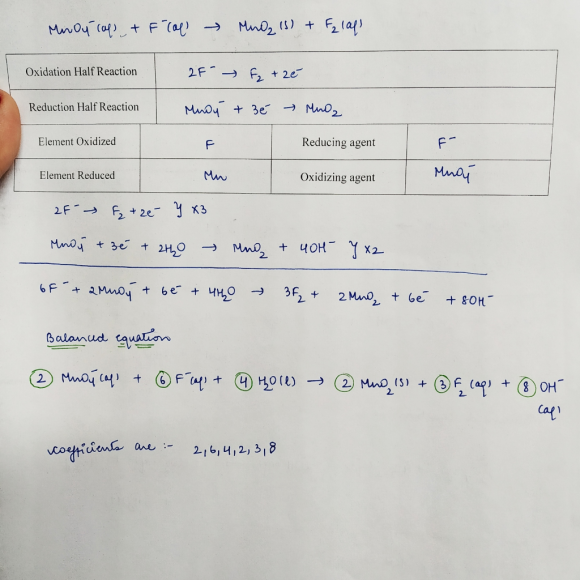 MnO₄⁻(aq) + F⁻(aq) → MnO₂(s) + F₂(aq)
Oxidation Half Reaction 2F⁻ → F₂ + 2e⁻
Reduction Half Reaction MnO₄⁻ + 3e⁻ → MnO₂
Element Oxidized F Reducing agent F⁻
Element Reduced Mn Oxidizing agent MnO₄⁻
2F⁻ → F₂ + 2e⁻ } x3
MnO₄⁻ + 3e⁻ + 2H₂O → MnO₂ + 4OH⁻ } x2
6F⁻ + 2MnO₄⁻ + 6e⁻ + 4H₂O → 3F₂ + 2MnO₂ + 6e⁻ + 8OH⁻
Balanced equation
2 MnO₄⁻(aq) + 6 F⁻(aq) + 4 H₂O(l) → 2 MnO₂(s) + 3 F₂(aq) + 8 OH⁻
(aq)
coefficients are :- 2,6,4,2,3,8